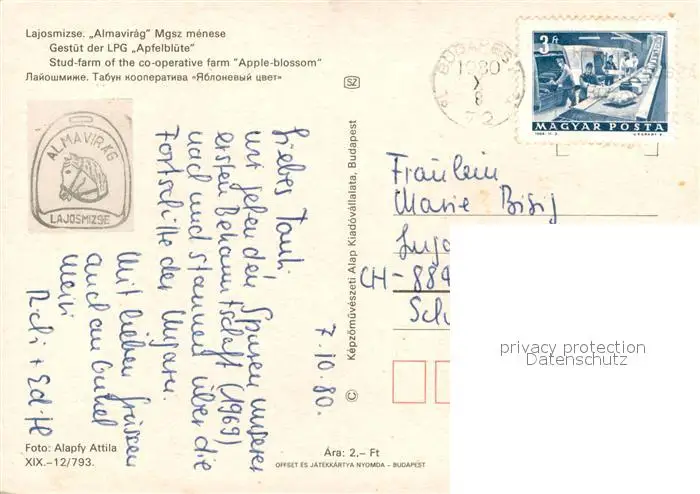 Lajosmizse. „Almavirág" Mgsz ménese
Gestüt der LPG „Apfelblüte"
Stud-farm of the co-operative farm "Apple-blossom"
Лайошмиже. Табун кооператива «Яблоневый цвет»
ALMAVIRÁG
LAJOSMIZSE
7.10.80.
Liebes Tanti
wir gehen den Spuren unserer
ersten Bekanntschaft (1969)
nach und staunen über die
Fortschritte der Ungarn.
Mit lieben Grüssen
auch an Onkel
+ Edith
Foto: Alapfy Attila
XIX.–12/793.
Ára: 2,– Ft
OFFSET ÉS JÁTÉKKÁRTYA NYOMDA – BUDAPEST
SZ
© Képzőművészeti Alap Kiadóvállalata, Budapest
BUDAPEST
1980
X
8
72
3 Ft
MAGYAR POSTA
Fräulein
Marie Bisig
CH-884
privacy protection
Datenschutz